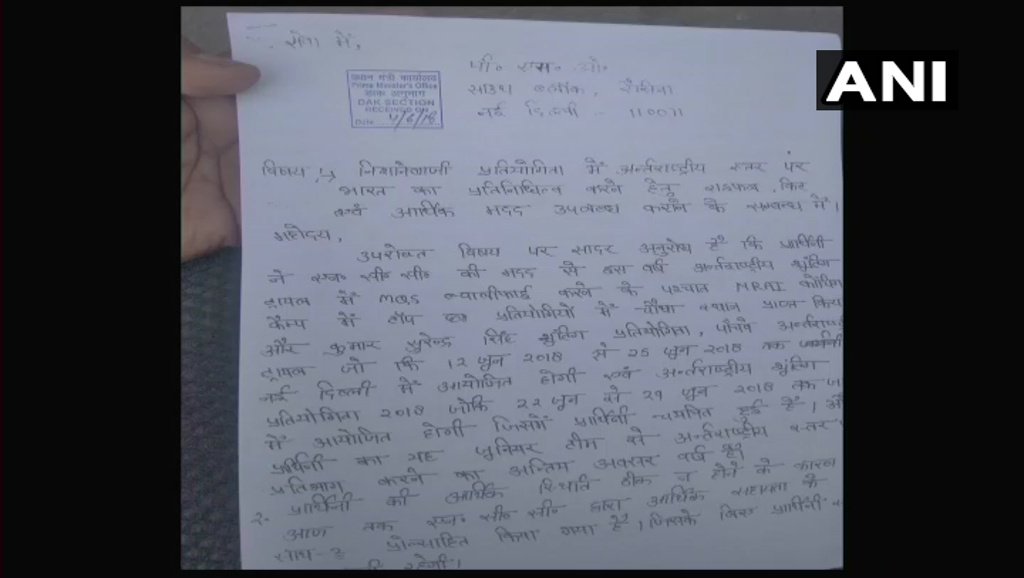 ANI
सेवा में,
पी० एम० ओ०
साउथ ब्लॉक, रायसीना
नई दिल्ली - 110011
प्रधान मंत्री कार्यालय
Prime Minister's Office
डाक अनुभाग
DAK SECTION
RECEIVED ON
4/6/18
विषय :- निशानेबाजी प्रतियोगिता में अर्न्तराष्ट्रीय स्तर पर
भारत का प्रतिनिधित्व करने हेतु राइफल, किट
एवं आर्थिक मदद उपलब्ध कराने के सम्बन्ध में।
महोदय,
उपरोक्त विषय पर सादर अनुरोध है कि प्रार्थिनी
ने एन० सी० सी० की मदद से इस वर्ष अर्न्तराष्ट्रीय शूटिंग
ट्रायल में MQS क्वालीफाई करने के पश्चात NRAI कोचिंग
कैम्प में टॉप प्रतियोगियों में चौथा स्थान प्राप्त किया
और कुमार सुरेन्द्र सिंह शूटिंग प्रतियोगिता, पाँचवे अर्न्तराष्ट्री
ट्रायल जो कि 12 जून 2018 से 25 जून 2018 तक
नई दिल्ली में आयोजित होगी एवं अर्न्तराष्ट्रीय शूटिंग
प्रतियोगिता 2018 जोकि 22 जून से 29 जून 2018 तक
में आयोजित होगी जिसमें प्रार्थिनी चयनित हुई है। और
प्रार्थिनी का यह जूनियर टीम से अर्न्तराष्ट्रीय स्तर
प्रतिभाग करने का अन्तिम अवसर वर्ष है।
2. प्रार्थिनी की आर्थिक स्थिति ठीक न होने के कारण
आज तक एन० सी० सी० द्वारा आर्थिक सहायता के
साथ-2 प्रोत्साहित किया गया है। जिसके लिए प्रार्थिनी
रहेगी।